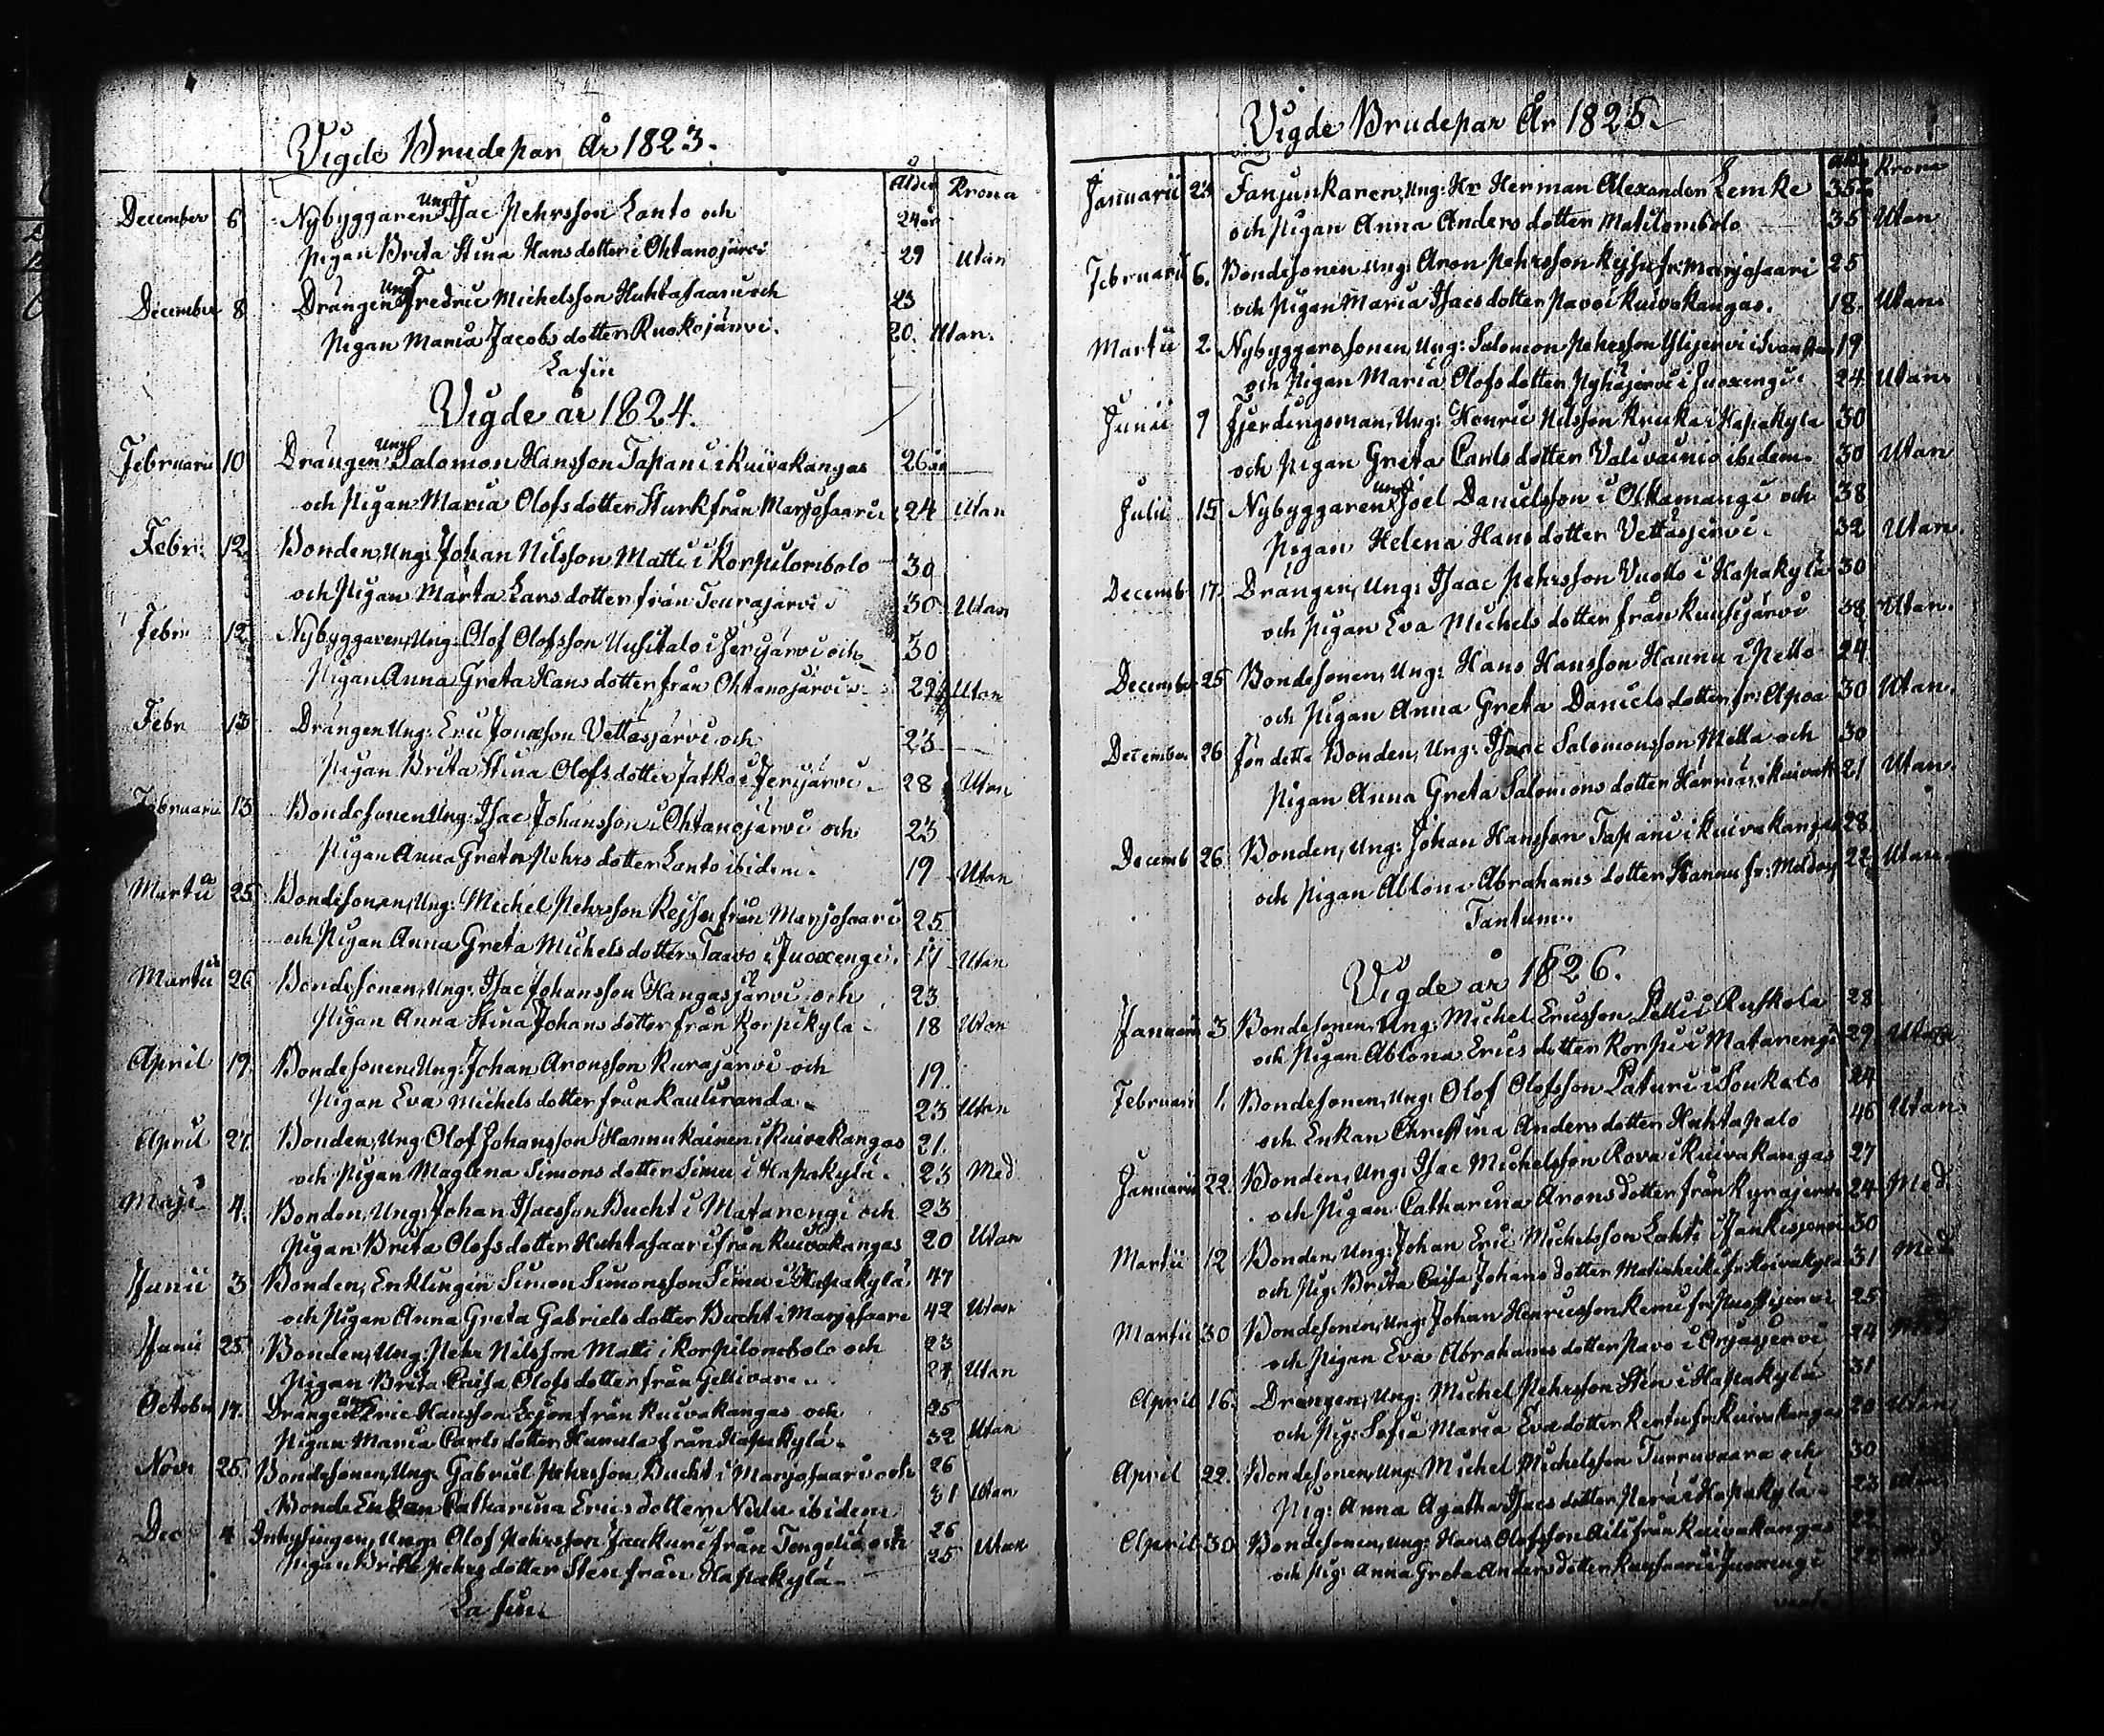 Vigde Brudepar År 1823.
Ålder Krona
December 6 Nybyggaren Ung: Isac Pehrsson Lanto och 24 år
Pigan Brita Stina Hansdotter i Ohtanajärvi 29 Utan
December 8 Drängen Ung: Fredric Michelsson Huhtasaari och 23
Pigan Maria Jacobsdotter Ruokojärvi. 20. Utan.
La fin
Vigde år 1824.
Februarii 10 Drängen Ung: Salomon Hansson Tapani i Kuivakangas 26 år
och Pigan Maria Olofsdotter Sturk från Marjosaari 24 Utan
Febr: 12 Bonden, Ung: Johan Nilsson Matti i Korpilombolo 30
och Pigan Märta Larsdotter från Teurajärvi 30 Utan
Febr: 12 Nybyggaren, Ung: Olof Olofsson Uusitalo i Jerijärvi och 30
Pigan Anna Greta Hansdotter från Ohtanajärvi 29 Utan
Febr 13 Drängen Ung: Eric Jonasson Vettäsjärvi och 23
Pigan Brita Stina Olofsdotter Jatko i Jerijärvi. 28 Utan
Februarii 13 Bondesonen Ung: Isac Johansson i Ohtanajärvi och 23
Pigan Anna Greta Pehrsdotter Lanto ibidem. 19 Utan
Martii 25 Bondesonen, Ung: Michel Pehrsson Kejsu från Marjosaari 25
och Pigan Anna Greta Michelsdotter Taavo i Juoxengi. 17 Utan
Martii 26 Bondesonen, Ung: Isac Johansson Kangasjärvi och 23
Pigan Anna Stina Johansdotter från Korpikylä 18 Utan
April 19. Bondesonen, Ung: Johan Aronsson Kurajärvi och 19.
Pigan Eva Michelsdotter från Kauliranda. 23 Utan
April 27. Bonden, Ung Olof Johansson Hannukainen i Kuivakangas 21.
och Pigan Maglena Simonsdotter Simu i Hapakylä. 23 Med
Maji 4. Bonden, Ung: Johan Isacsson Bucht i Matarengi och 23
Pigan Brita Olofsdotter Huhtasaari från Kuivakangas 20 Utan
Junii 3 Bonden, Enklingen Simon Simonsson Simu i Hapakylä 47
och Pigan Anna Greta Gabrielsdotter Bucht i Marjosaari 42 Utan
Junii 25. Bonden, Ung. Pehr Nilsson Matti i Korpilombolo och 23
Pigan Brita Caisa Olofsdotter från Gellivare. 27 Utan
October 14. Drängen Ung: Eric Hansson Lejon från Kuivakangas och 25
Pigan Maria Carlsdotter Hurula från Hapakylä. 32 Utan
Nov: 25. Bondesonen, Ung: Gabriel Pehrsson Bucht i Marjosaari och 26
Bonde Enkan Catharina Ericsdotter Niva ibidem 31 Utan
Dec 4 Inhysingen, Ung: Olof Pehrsson Jaakuri från Tengeliä och 26
Pigan Brita Pehrsdotter Sten från Hapakylä. 25 Utan
La fin.
Vigde Brudepar År 1825.
Ålder Krona
Januarii 24 Fanjunkaren, Ung: Hr Herman Alexander Lemke 35
och Pigan Anna Andersdotter Matilombolo 35 Utan
Februarii 6. Bondesonen Ung: Aron Pehrsson Kejsu fr: Marjosaari 25
och Pigan Maria Isacsdotter Pavo i Kuivakangas. 18. Utan.
Martii 2 Nybyggaresonen, Ung: Salomon Pehrsson Ylijervi i Svanstein 19
och Pigan Maria Olofsdotter Pyhäjärvi i Juoxengi 24 Utan
Junii 9 Fjerdingsman, Ung: Henric Nilsson Kruka i Hapakylä 30
och Pigan Greta Carlsdotter Valivainio ibidem. 30 Utan
Julii 15 Nybyggaren Ung: Joel Danielsson i Ohtamangi och 38
Pigan Helena Hansdotter Vettäsjervi. 32 Utan.
Decemb: 17. Drängen, Ung: Isaac Pehrsson Vuotto i Hapakylä 30
och Pigan Eva Michelsdotter från Kuusijärvi 38 Utan.
December 25 Bondesonen, Ung: Hans Hansson Hannu i Pello 24
och Pigan Anna Greta Danielsdotter fr: Apoa 30 Utan.
December 26 För detta Bonden, Ung: Isaac Salomonsson Mella och 30
Pigan Anna Greta Salomonsdotter Härmä i Kuivak: 21 Utan.
Decemb 26 Bonden, Ung: Johan Hansson Tapani i Kuivakangas 28
och Pigan Ablona Abrahamsdotter Hannu fr: Meldosj 22 Utan.
Tantum.
Vigde år 1826.
Januarii 3 Bondesonen, Ung: Michel Ericsson Pelli i Ruskola 28
och Pigan Ablona Ericsdotter Korpi i Matarengi 29 Utan
Februarii 1. Bondesonen, Ung: Olof Olofsson Paturi i Soukolo 24
och Enkan Christina Andersdotter Huhtapalo 46 Utan
Januarii 22. Bonden, Ung: Isac Michelsson Rova i Kuivakangas 27
och Pigan Catharina Aronsdotter från Kyrajervi 24 Med
Martii 12 Bonden, Ung: Johan Eric Michelsson Lahti i Jankisjervi 30
och Pig: Brita Caisa Johansdotter Matinheiki fr: Koivukylä 31 Med
Martii 30 Bondesonen, Ung: Johan Henricsson Kemi fr: 25
och Pigan Eva Abrahamsdotter Pavo i Orjasjervi 24 Med
April 16. Drengen, Ung: Michel Pehrsson Sten i Hapakylä 31
och Pig: Sofia Maria Evadotter Kertu fr: Kuivakangas 20 Utan
April 22. Bondesonen, Ung: Michel Michelsson Turruvaara och 30
Pig: Anna Agatha Isacsdotter Perä i Hapakylä 23 Utan
April 30 Bondesonen, Ung: Hans Olofsson Aili från Kuivakangas 22
och Pig: Anna Greta Andersdotter i Juoxengi Med